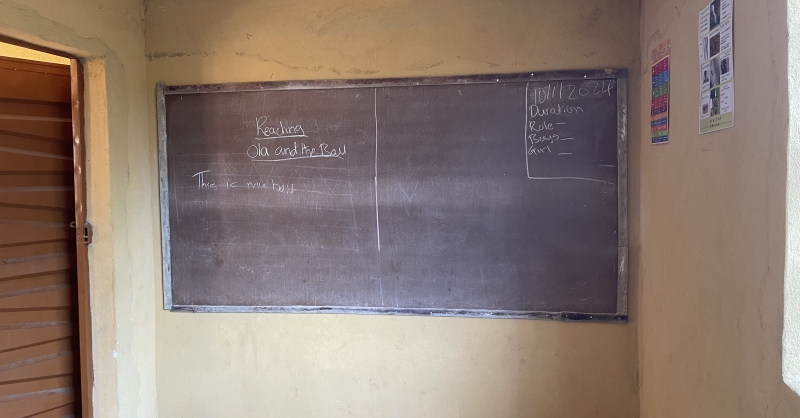 Reading
Ola and the Ball
This is
10/1/2024
Duration
Role-
Boys-
Girl -